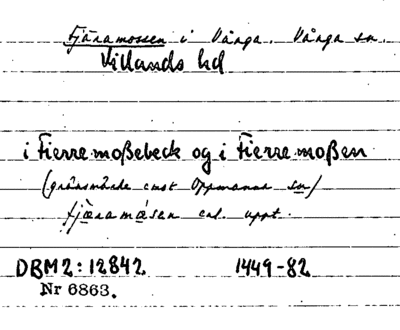 Fjäramossen i Vånga. Vånga sn.
Villands hd
i Fierre moßebeck og i Fierre moßen
(gränsmärke mot Oppmanna sn)
fjæramåsen enl. uppt.
DBM2:12842. 1449-82
Nr 6863.